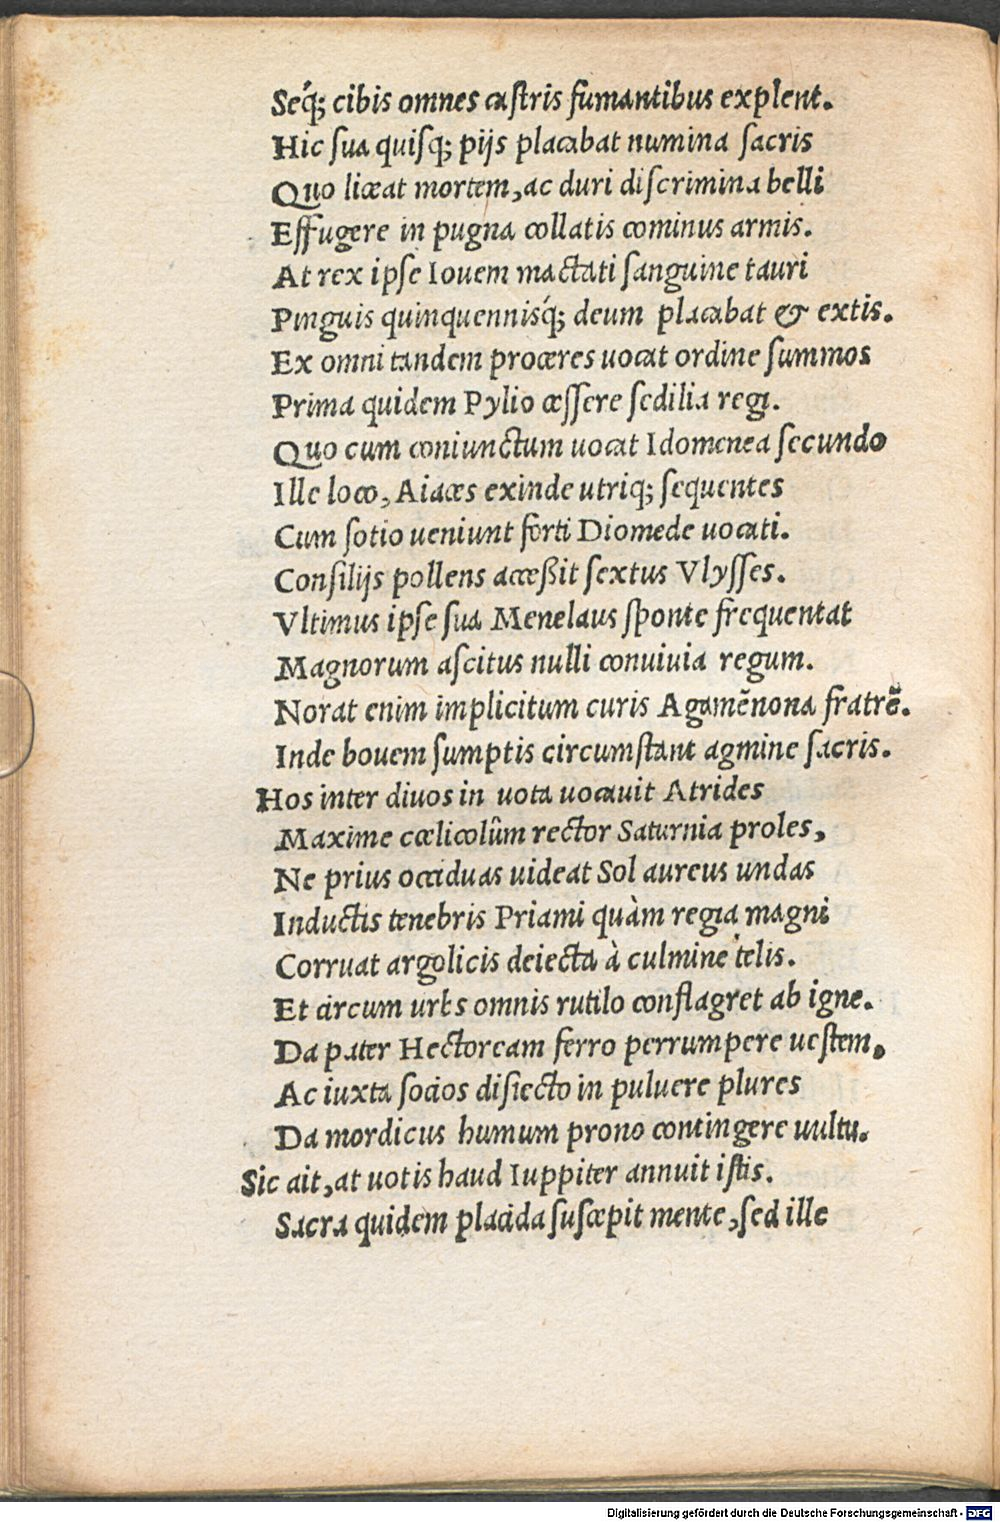 Seq́; cibis omnes castris fumantibus explent.
Hic sua quisq; pijs placabat numina sacris
Quo liceat mortem, ac duri discrimina belli
Effugere in pugna collatis cominus armis.
At rex ipse Iouem mactati sanguine tauri
Pinguis quinquennisq́; deum placabat & extis.
Ex omni tandem proceres uocat ordine summos
Prima quidem Pylio cessere sedilia regi.
Quo cum coniunctum uocat Idomenea secundo
Ille loco, Aiaces exinde utriq; sequentes
Cum sotio ueniunt forti Diomede uocati.
Consilijs pollens acceßit sextus Vlysses.
Vltimus ipse sua Menelaus sponte frequentat
Magnorum ascitus nulli conuiuia regum.
Norat enim implicitum curis Agamēnona fratrē.
Inde bouem sumptis circumstant agmine sacris.
Hos inter diuos in uota uocauit Atrides
Maxime cœlicolûm rector Saturnia proles,
Ne prius occiduas uideat Sol aureus undas
Inductis tenebris Priami quàm regia magni
Corruat argolicis deiecta à culmine telis.
Et circum urbs omnis rutilo conflagret ab igne.
Da pater Hectoream ferro perrumpere uestem,
Ac iuxta socios disiecto in puluere plures
Da mordicus humum prono contingere uultu.
Sic ait, at uotis haud Iuppiter annuit istis.
Sacra quidem placida suscepit mente, sed ille
Digitalisierung gefördert durch die Deutsche Forschungsgemeinschaft - DFG